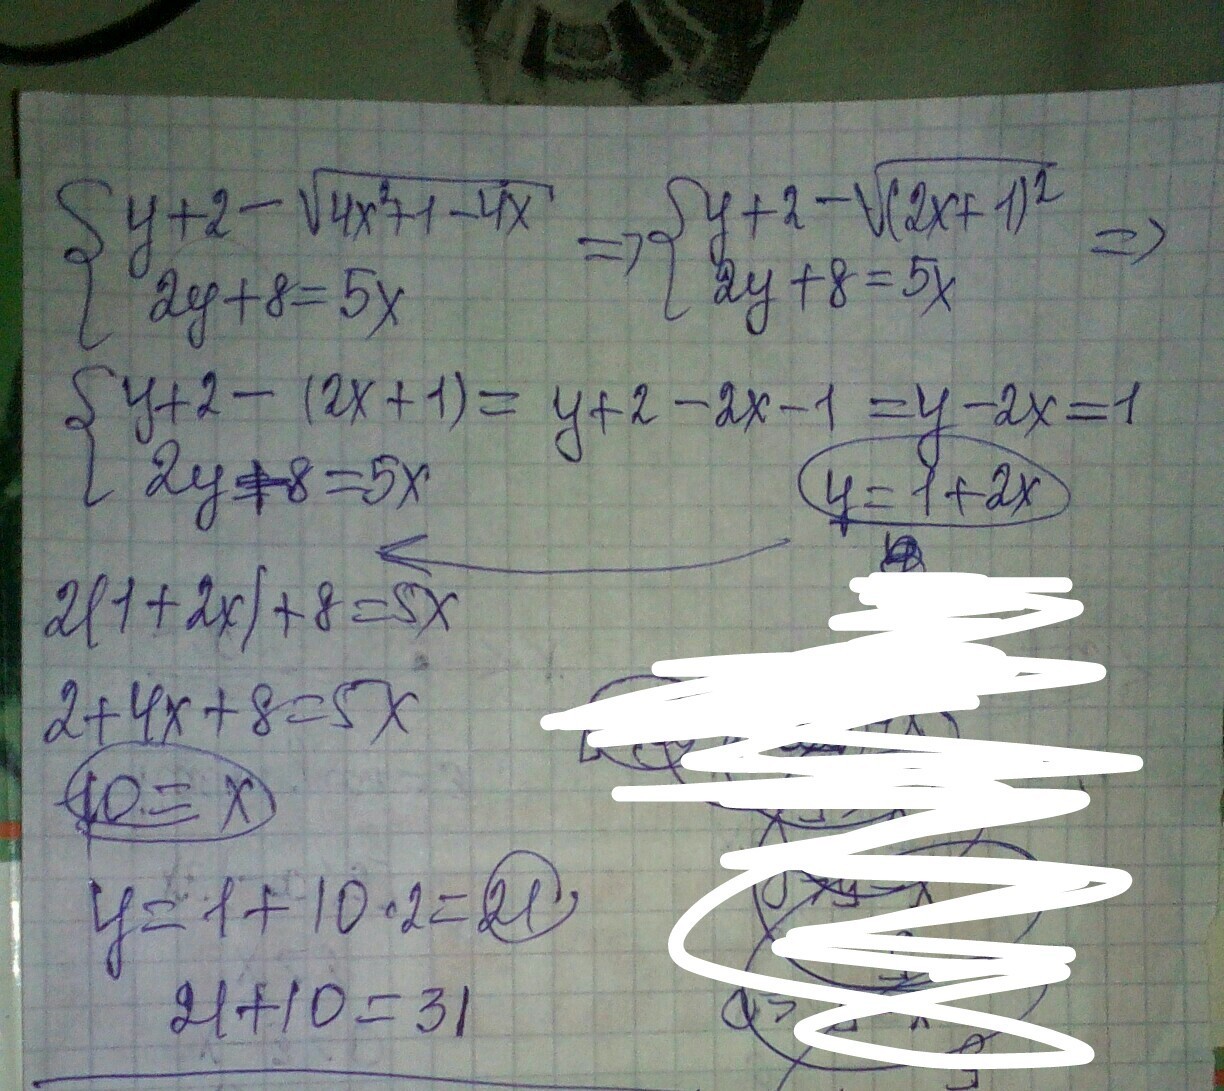 {y+2-√(4x²+1-4x) => {y+2-√((2x+1)²) =>
2y+8=5x 2y+8=5x
{y+2-(2x+1)= y+2-2x-1 =y-2x=1
2y+8=5x y=1+2x
2(1+2x)+8=5x
2+4x+8=5x
10=x
y=1+10·2=21
21+10=31